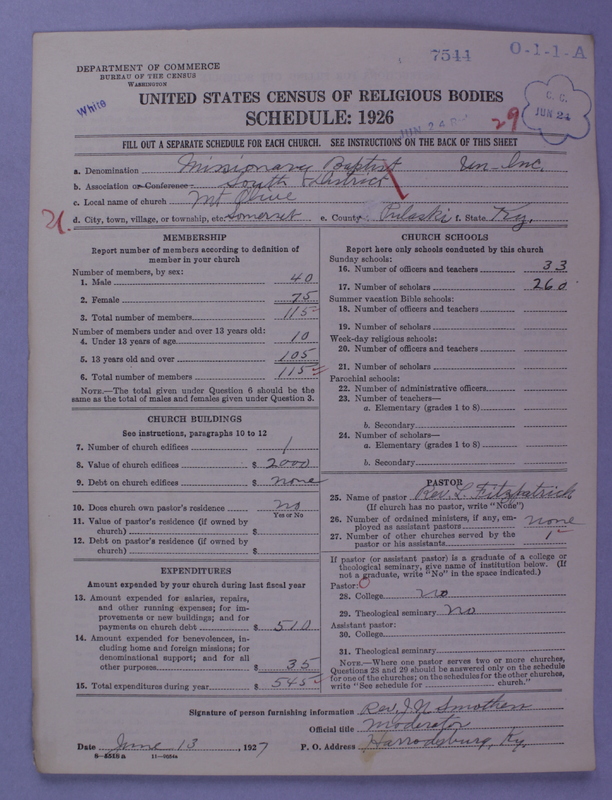 7544 O-1-1-A
DEPARTMENT OF COMMERCE
BUREAU OF THE CENSUS
WASHINGTON
White
C. C.
JUN 24
UNITED STATES CENSUS OF RELIGIOUS BODIES
SCHEDULE: 1926
JUN 24
29
FILL OUT A SEPARATE SCHEDULE FOR EACH CHURCH. SEE INSTRUCTIONS ON THE BACK OF THIS SHEET
a. Denomination Missionary Baptist Un-Inc.
b. Association or Conference South District
c. Local name of church Mt Olive
d. City, town, village, or township, etc. Somerset e. County Pulaski f. State Ky.
MEMBERSHIP
Report number of members according to definition of
member in your church
Number of members, by sex:
1. Male 40
2. Female 75
3. Total number of members 115
Number of members under and over 13 years old:
4. Under 13 years of age 10
5. 13 years old and over 105
6. Total number of members 115
NOTE.—The total given under Question 6 should be the
same as the total of males and females given under Question 3.
CHURCH BUILDINGS
See instructions, paragraphs 10 to 12
7. Number of church edifices 1
8. Value of church edifices $ 2000
9. Debt on church edifices $ none
10. Does church own pastor's residence no
Yes or No
11. Value of pastor's residence (if owned by
church) $
12. Debt on pastor's residence (if owned by
church) $
EXPENDITURES
Amount expended by your church during last fiscal year
13. Amount expended for salaries, repairs,
and other running expenses; for im-
provements or new buildings; and for
payments on church debt $ 510
14. Amount expended for benevolences, in-
cluding home and foreign missions; for
denominational support; and for all
other purposes $ 35
15. Total expenditures during year $ 545
CHURCH SCHOOLS
Report here only schools conducted by this church
Sunday schools:
16. Number of officers and teachers 33
17. Number of scholars 260
Summer vacation Bible schools:
18. Number of officers and teachers
19. Number of scholars
Week-day religious schools:
20. Number of officers and teachers
21. Number of scholars
Parochial schools:
22. Number of administrative officers
23. Number of teachers—
a. Elementary (grades 1 to 8)
b. Secondary
24. Number of scholars—
a. Elementary (grades 1 to 8)
b. Secondary
PASTOR
25. Name of pastor Rev. L. Fitzpatrick
(If church has no pastor, write "None")
26. Number of ordained ministers, if any, em-
ployed as assistant pastors none
27. Number of other churches served by the
pastor or his assistants 1
If pastor (or assistant pastor) is a graduate of a college or
theological seminary, give name of institution below. (If
not a graduate, write "No" in the space indicated.)
Pastor: 0
28. College no
29. Theological seminary no
Assistant pastor:
30. College
31. Theological seminary
NOTE.—Where one pastor serves two or more churches,
Questions 28 and 29 should be answered only on the schedule
for one of the churches; on the schedules for the other churches,
write "See schedule for church."
Signature of person furnishing information Rev. J. N. Smothers
Official title Moderator
Date June 13, 1927 P. O. Address Harrodsburg, Ky.
8-5510a 11-9084a